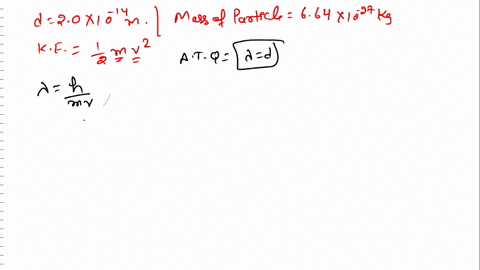 d = 2.0 × 10⁻¹⁴ m. | Mass of Particle = 6.64 × 10⁻²⁷ Kg
K.E. = 1/2 m v²
A.T.Q = λ = d
λ = h/mv